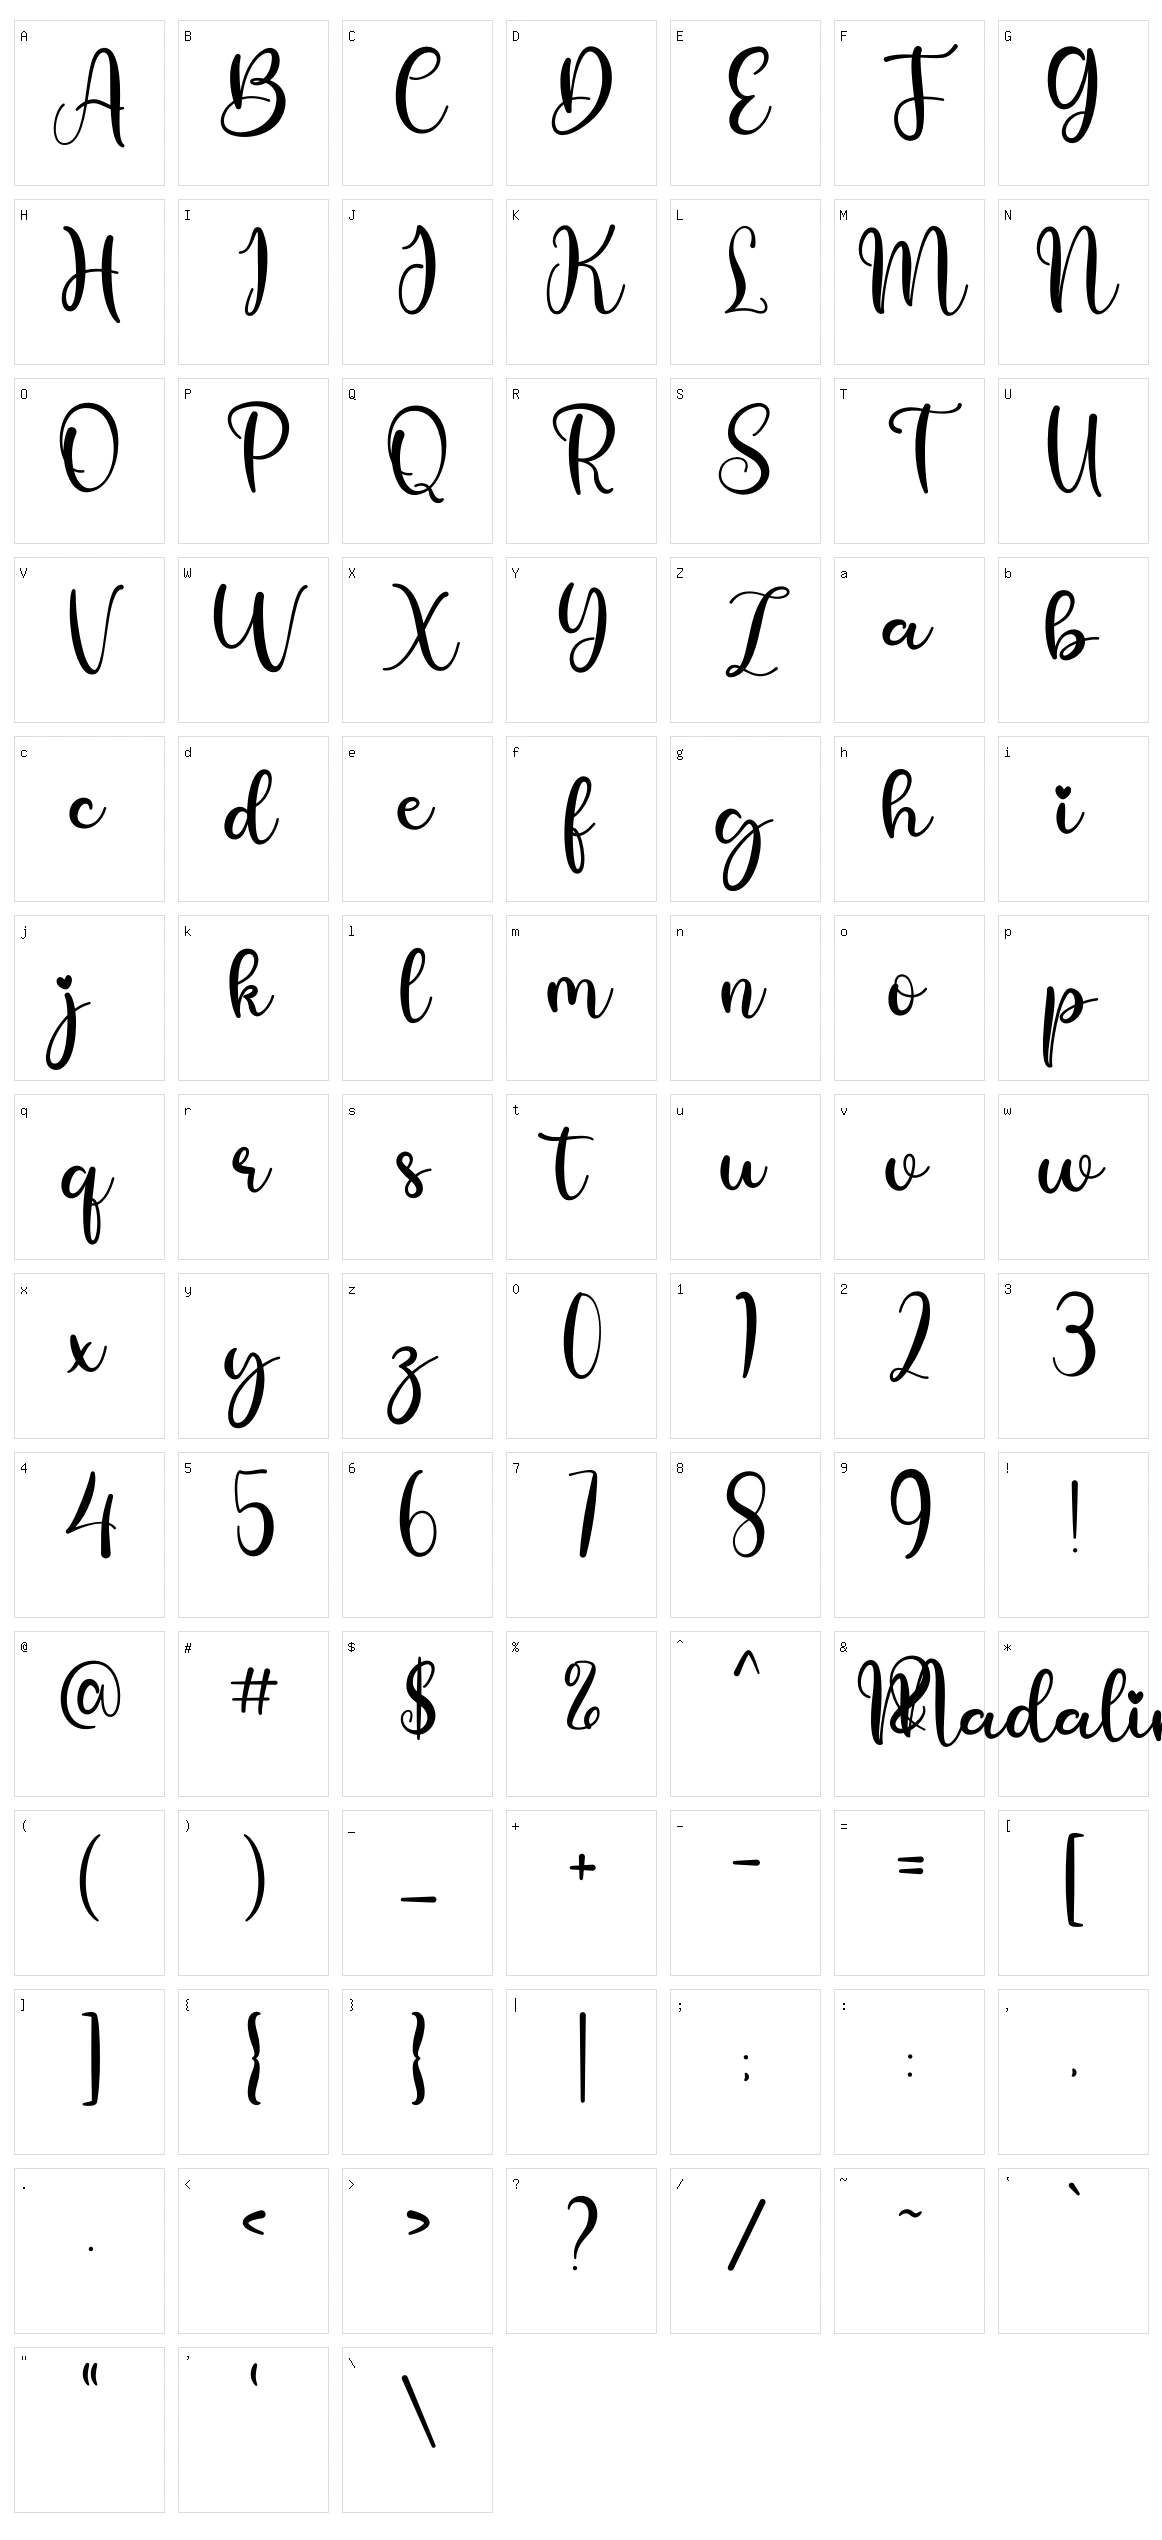 A B C D E F G
A B C D E F G
H I J K L M N
H I J K L M N
O P Q R S T U
O P Q R S T U
V W X Y Z a b
V W X Y Z a b
c d e f g h i
c d e f g h i
j k l m n o p
j k l m n o p
q r s t u v w
q r s t u v w
x y z 0 1 2 3
x y z 0 1 2 3
4 5 6 7 8 9 !
4 5 6 7 8 9 !
@ # $ % ^ & *
@ # $ % ^ & Madalin
( ) _ + - = [
( ) _ + - = [
] { } | ; : ,
] { } | ; : ,
. < > ? / ~ `
. < > ? / ~ `
" ' \
" ' \